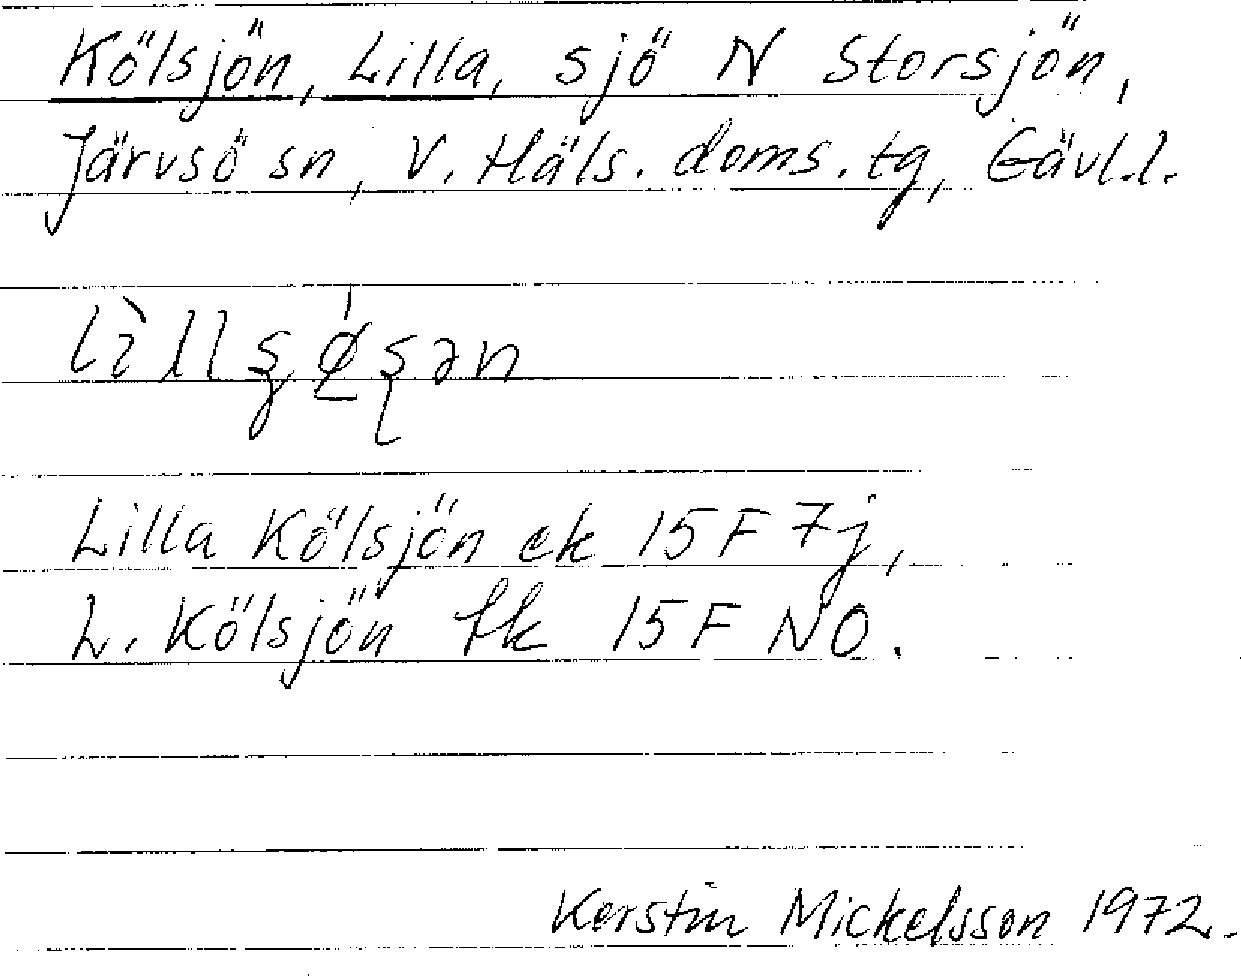 Kölsjön, Lilla, sjö N Storsjön,
Järvsö sn, V. Häls. doms. tg, Gävl.l.
Lilla Kölsjön ek 15F 7j,
L. Kölsjön tk 15F NO.
Kerstin Mickelsson 1972.